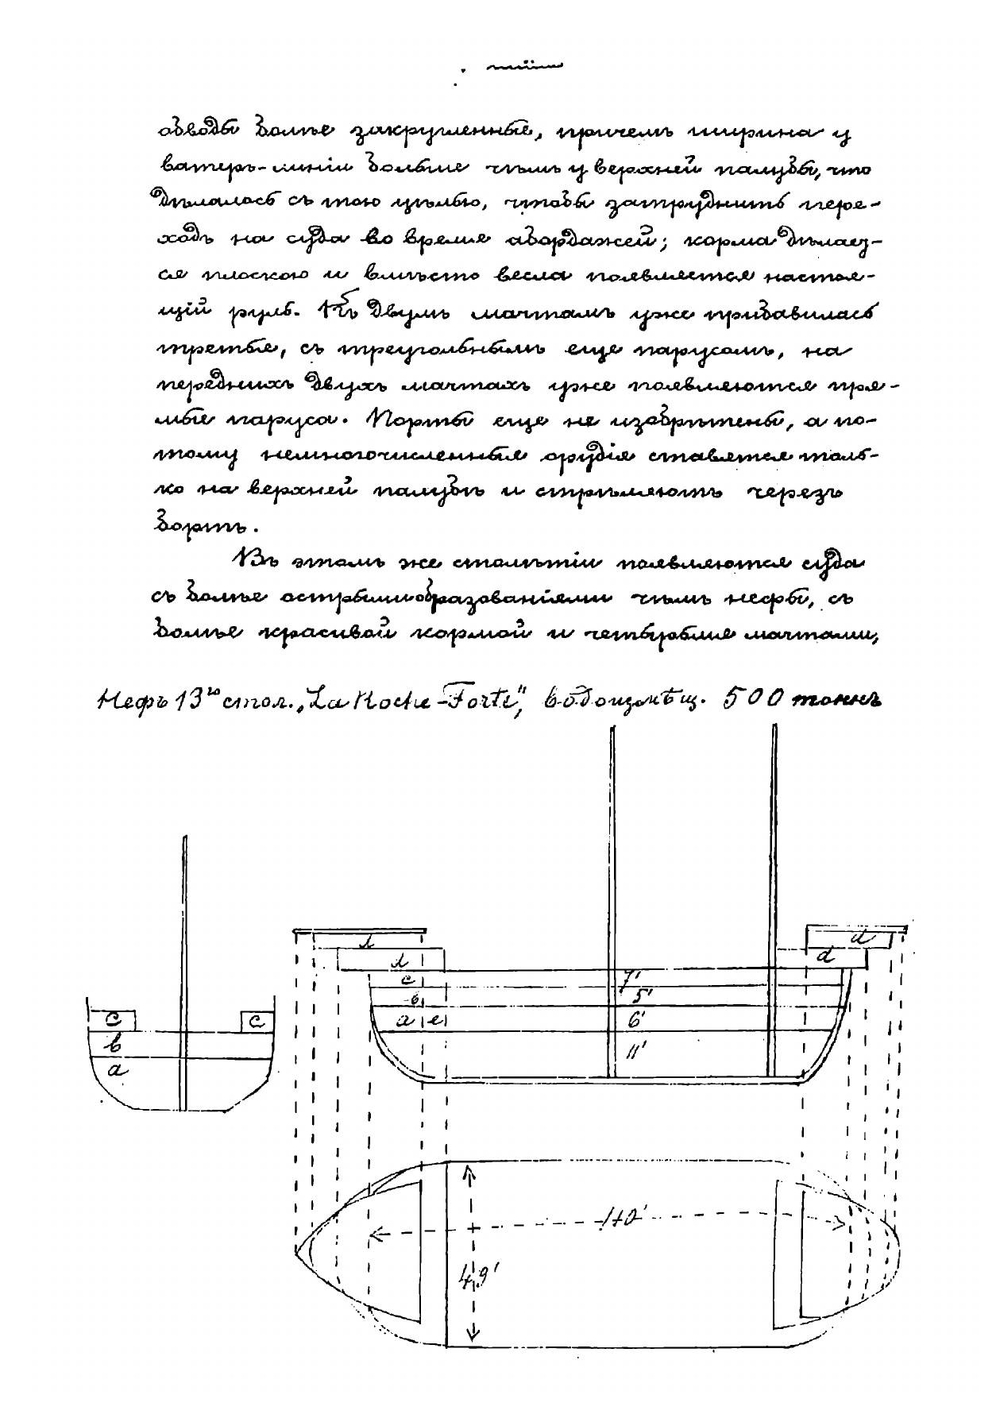 обводы болѣе закругленные, причемъ ширина у
ватеръ-линіи больше чѣмъ у верхней палубы, что
дѣлалось съ тою цѣлью, чтобы затруднить пере-
ходъ на суда во время абордажей; корма дѣлает-
ся плоскою и вмѣсто весла появляется настоя-
щій руль. Къ двумъ мачтамъ уже прибавилась
третья, съ треугольнымъ еще парусомъ, на
переднихъ двухъ мачтахъ уже появляются пря-
мые паруса. Порты еще не изобрѣтены, а по-
тому немногочисленныя орудія ставятся толь-
ко на верхней палубѣ и стрѣляютъ черезъ
бортъ.
Въ этомъ же столѣтіи появляются суда
съ болѣе острыми образованіями чѣмъ нефы, съ
болѣе красивой кормой и четырьмя мачтами,
Нефъ 13го стол. „La Roche-Forte", водоизмѣщ. 500 тоннъ
d
d
d
d
c
7'
b
5'
a e
6'
11'
c
c
b
a
110'
49'